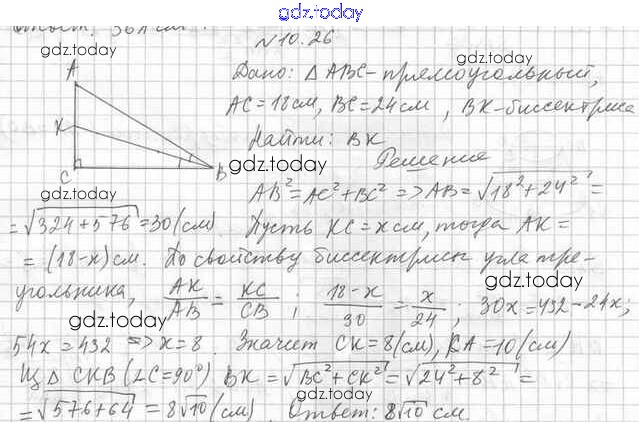 gdz.today
Ответ: 36π см².
gdz.today
№10.26
gdz.today
A
K
C
B
Дано: △ABC-прямоугольный,
AC=18см, BC=24см, BK-биссектриса
gdz.today
Найти: BK
gdz.today
Решение
AB²=AC²+BC² =>AB=√18²+24² =
gdz.today
=√324+576=30(см). Пусть KC=xсм, тогда AK=
gdz.today
=(18-x)см. По свойству биссектрисы угла тре-
gdz.today
угольника, AK/AB=KC/CB; 18-x/30=x/24; 30x=432-24x;
gdz.today
gdz.today
54x=432 =>x=8. Значит CK=8(см), KA=10(см)
gdz.today
Из △ CKB (∠C=90°) BK=√BC²+CK²=√24²+8² =
=√576+64=8√10(см). Ответ: 8√10 см.
gdz.today
gdz.today